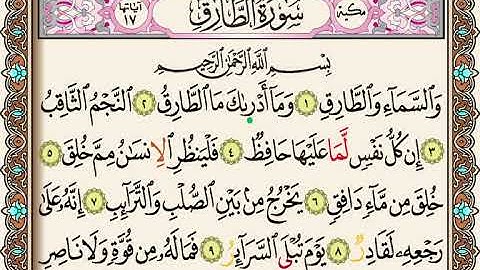 مكية سُورَةُ الطَّارِقِ آياتها ١٧
بِسْمِ اللَّهِ الرَّحْمَٰنِ الرَّحِيمِ
وَالسَّمَاءِ وَالطَّارِقِ ١ وَمَا أَدْرَىٰكَ مَا الطَّارِقُ ٢ النَّجْمُ الثَّاقِبُ
٣ إِن كُلُّ نَفْسٍ لَّمَّا عَلَيْهَا حَافِظٌ ٤ فَلْيَنظُرِ الْإِنسَٰنُ مِمَّ خُلِقَ ٥
خُلِقَ مِن مَّاءٍ دَافِقٍ ٦ يَخْرُجُ مِن بَيْنِ الصُّلْبِ وَالتَّرَائِبِ ٧ إِنَّهُ عَلَىٰ
رَجْعِهِ لَقَادِرٌ ٨ يَوْمَ تُبْلَى السَّرَائِرُ ٩ فَمَا لَهُ مِن قُوَّةٍ وَلَا نَاصِرٍ